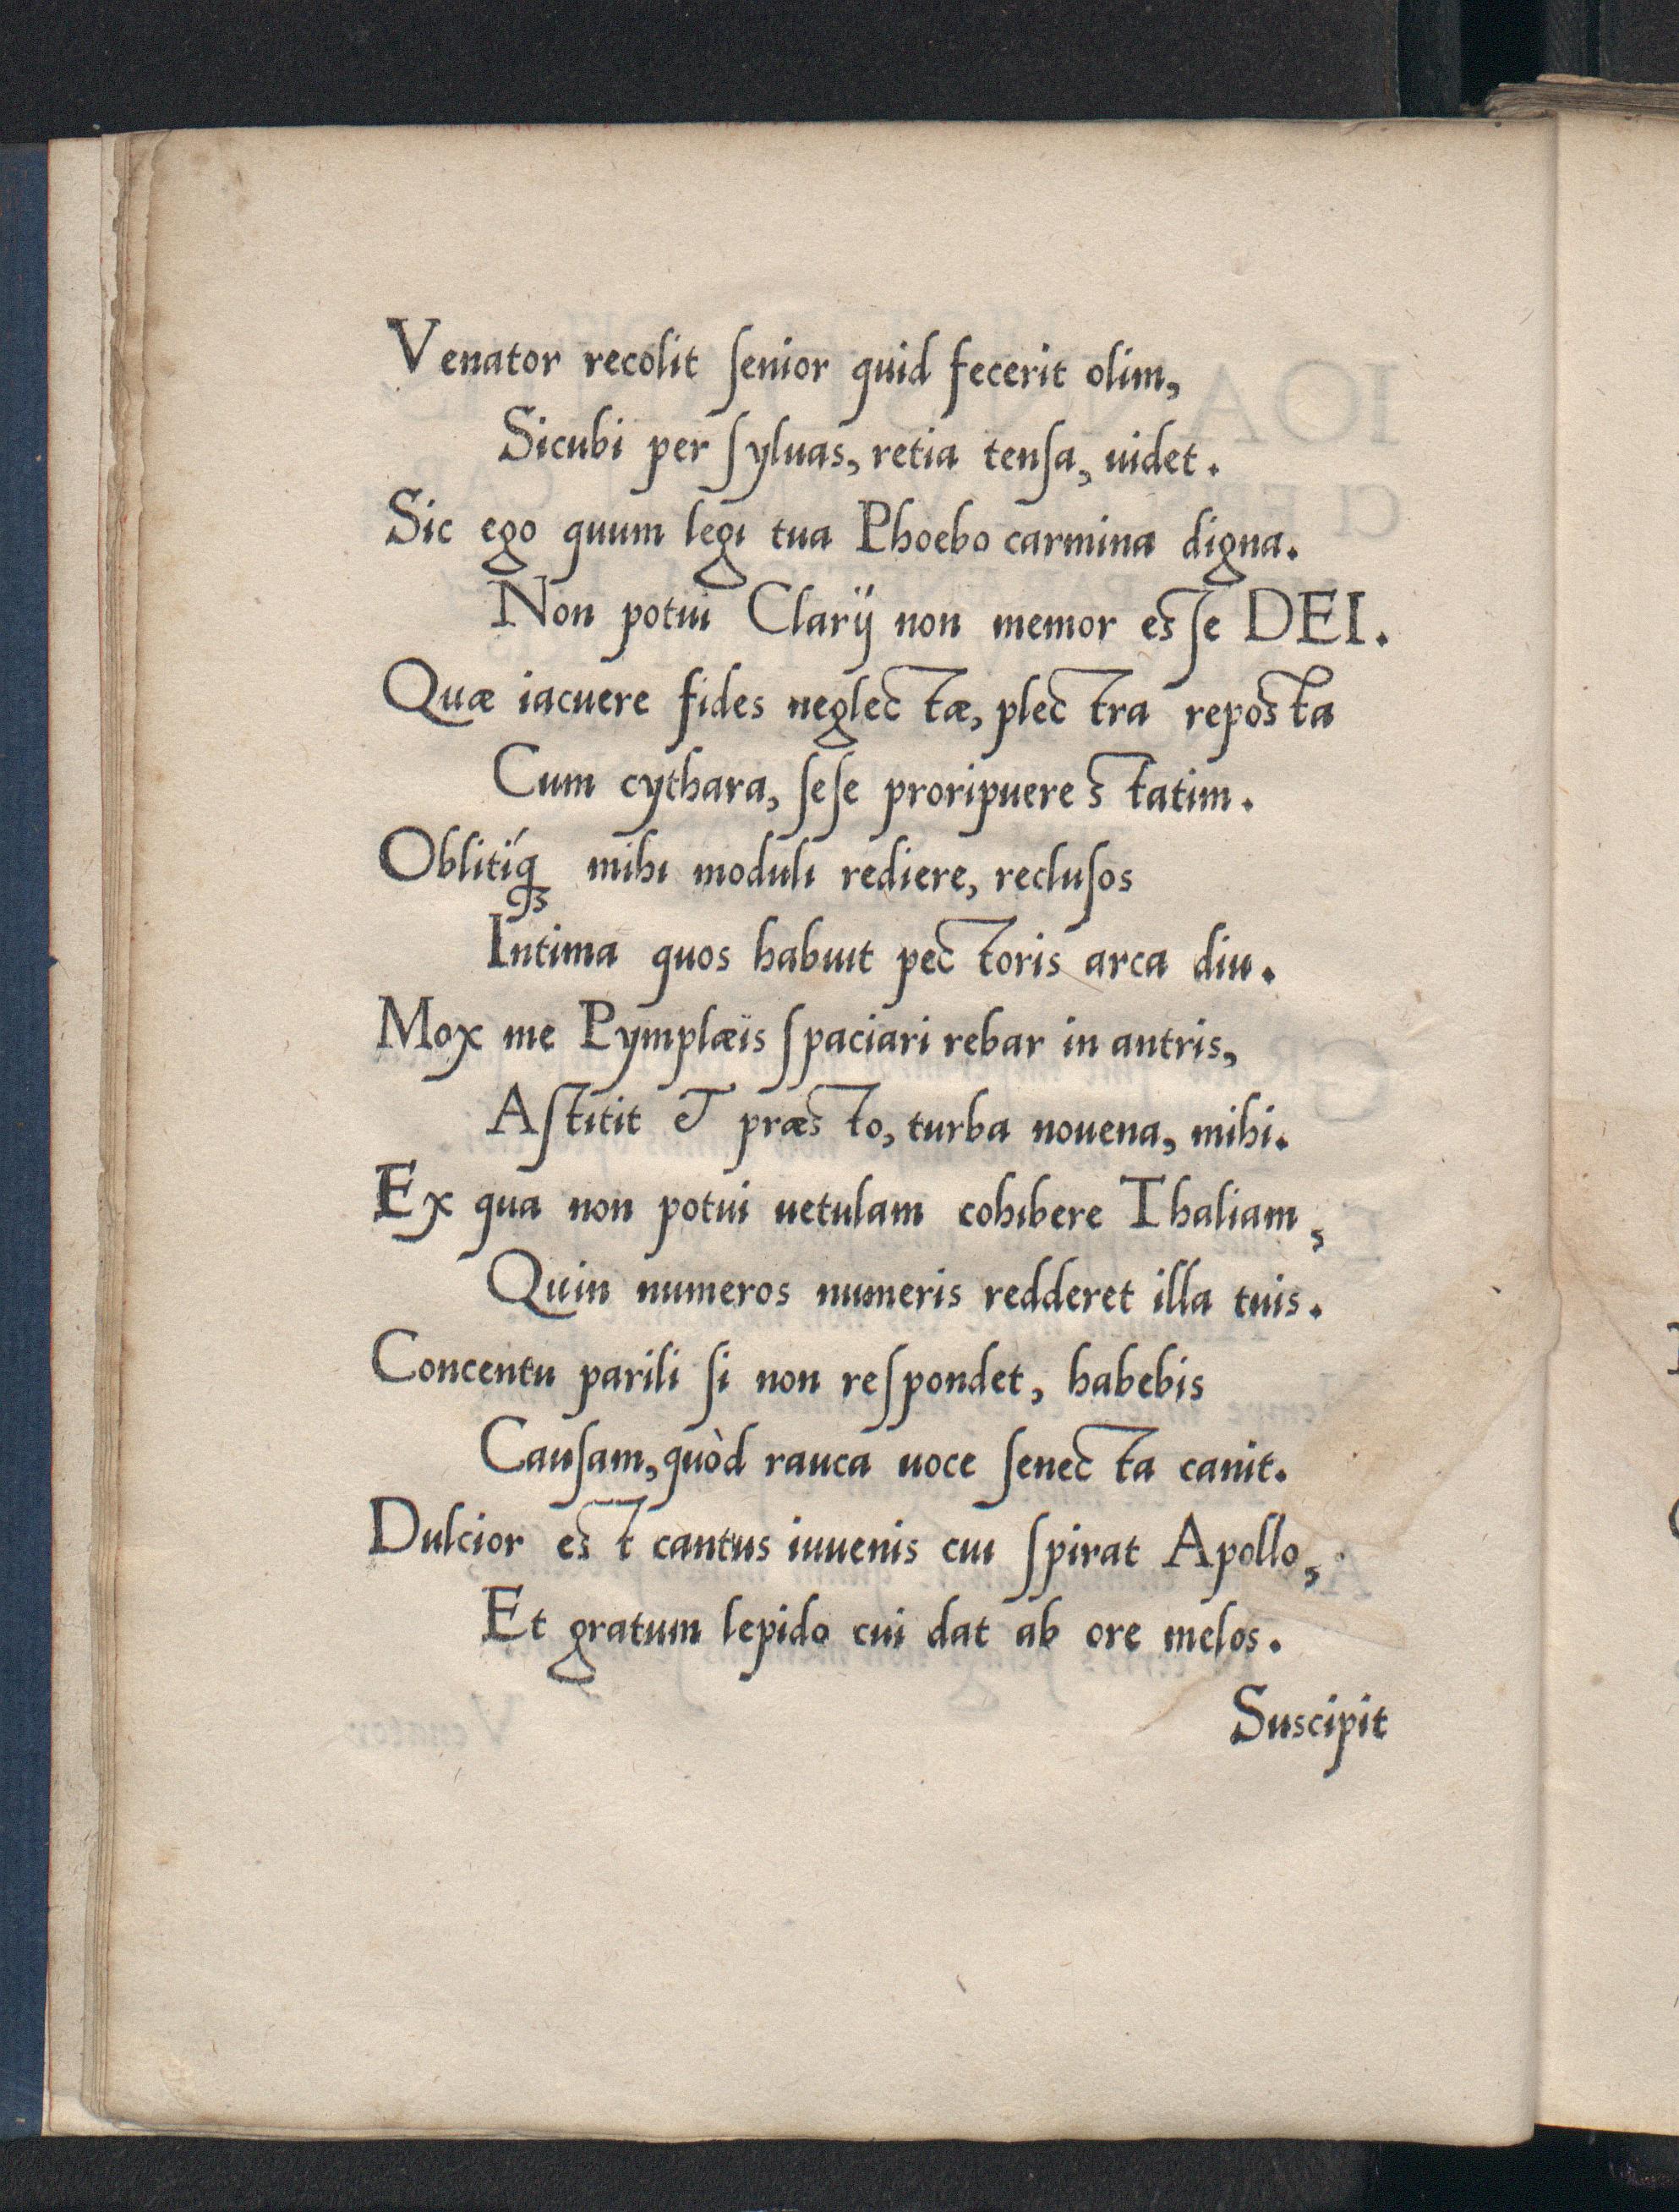 Venator recolit ſenior quid fecerit olim,
Sicubi per ſyluas, retia tenſa, uidet.
Sic ego quum legi tua Phoebo carmina digna.
Non potui Clarij non memor esſe DEI.
Quæ iacuere fides neglectæ, plectra reposta
Cum cythara, ſeſe proripuere statim.
Oblitíq; mihi moduli rediere, recluſos
Intima quos habuit pectoris arca diu.
Mox me Pymplæis ſpaciari rebar in antris,
Aſtitit & præsto, turba nouena, mihi.
Ex qua non potui uetulam cohibere Thaliam,
Quin numeros numeris redderet illa tuis.
Concentu parili ſi non reſpondet, habebis
Cauſam, quòd rauca uoce ſenecta canit.
Dulcior est cantus iuuenis cui ſpirat Apollo,
Et gratum lepido cui dat ab ore melos.
Suscipit